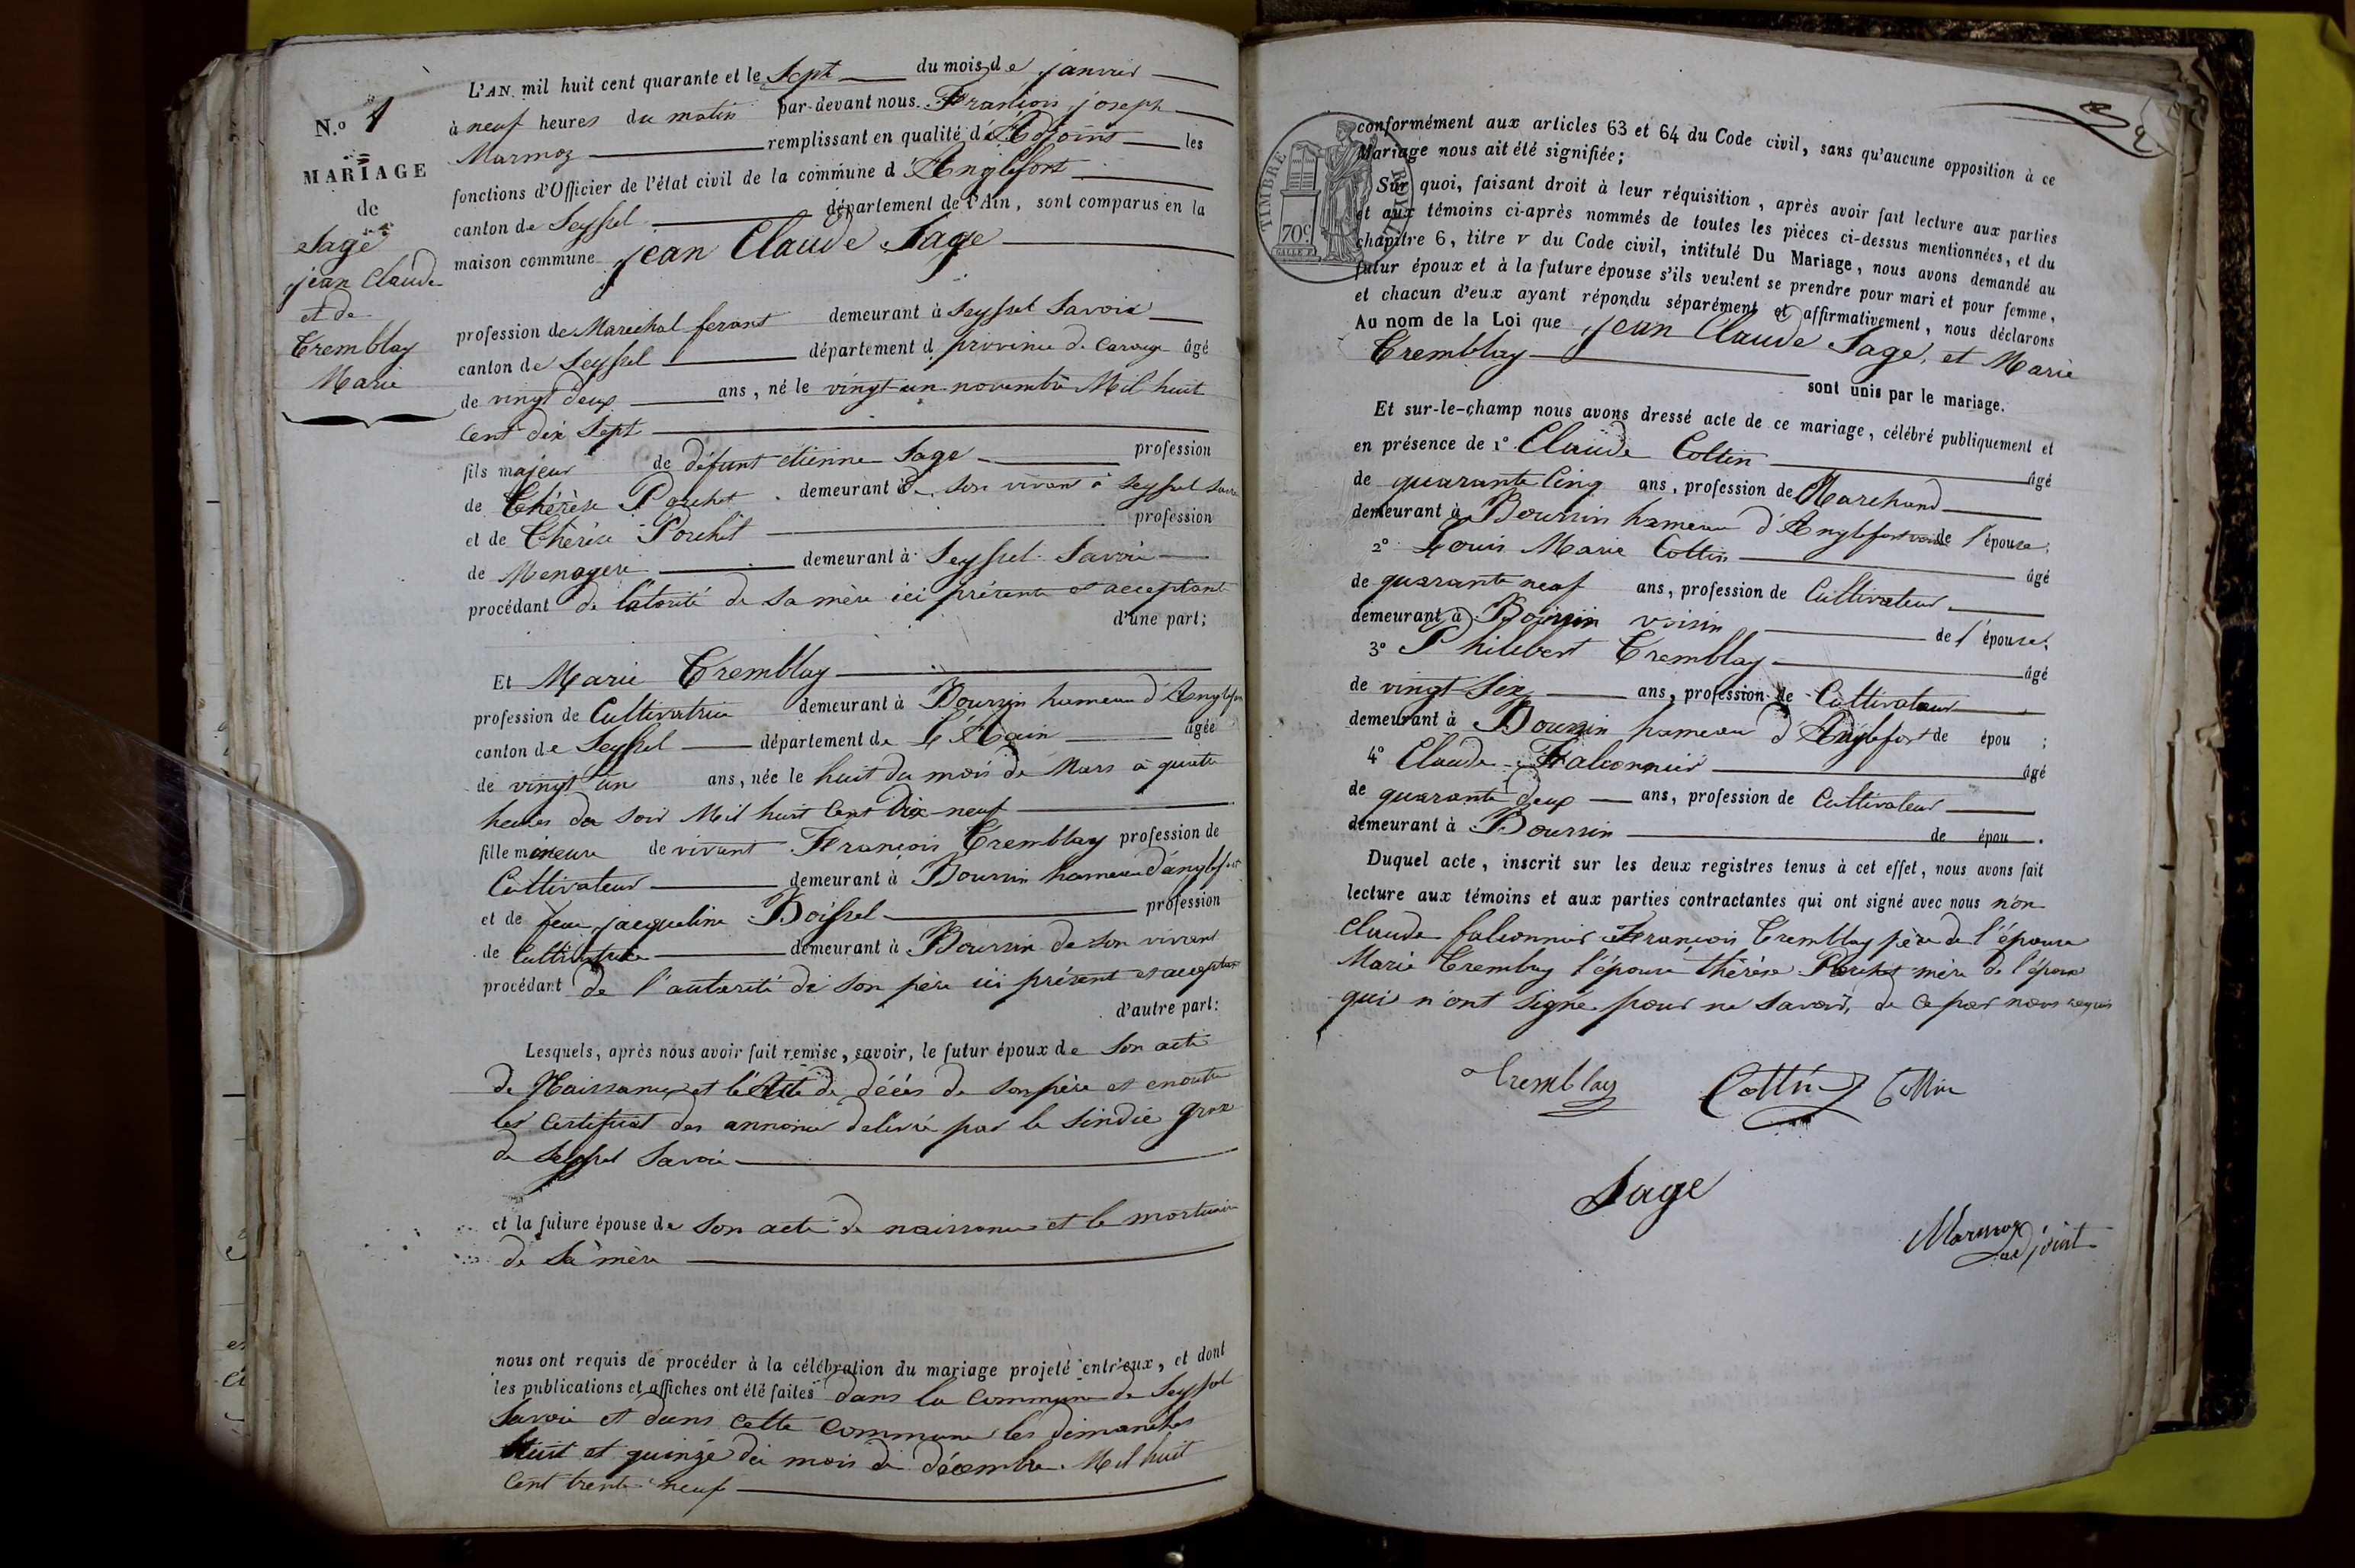 N.º 1
MARIAGE
de
Sage
jean Claude
et de
Tremblay
Marie
L'AN mil huit cent quarante et le Sept du mois de janvier
à neuf heures du matin par-devant nous François joseph
Marmoz remplissant en qualité d'Adjoint les
fonctions d'Officier de l'état civil de la commune d'Anglefort
canton de Seyssel département de l'Ain, sont comparus en la
maison commune jean Claude Sage
profession de Marechal ferant demeurant à Seyssel Savoie
canton de Seyssel département d province de Carouge âgé
de vingt deux ans, né le vingt un novembre Mil huit
Cent dix Sept
fils majeur de défunt etienne Sage profession
de Thérèse Porchet demeurant à de son vivant à Seyssel Savoie
et de Thérèse Porchet profession
de Menagere demeurant à Seyssel Savoie
procédant de l'atorité de sa mère ici présente et acceptante
d'une part;
Et Marie Tremblay
profession de Cultivatrice demeurant à Boursin hameau d'Anglefort
canton de Seyssel département de L'Aain âgée
de vingt un ans, née le huit du mois de Mars a quatre
heures du soir Mil huit Cent Dix-neuf
fille mineure de vivant François Tremblay profession de
Cultivateur demeurant à Boursin hameau d'anglefort
et de feue jacqueline Boissel profession
de Cultivatrice demeurant à Boursin de son vivant
procédant de l'autorité de son père ici présent et acceptant
d'autre part:
Lesquels, après nous avoir fait remise, savoir, le futur époux de Son acte
de Naissance et l'Acte de décès de son père et en outre
les Certificat des annonces delivré par le Sindic Gros
de Seyssel Savoie
et la future épouse de Son acte de naissance et le mortuaire
de Sa mère
nous ont requis de procéder à la célébration du mariage projeté entr'eux, et dont
les publications et affiches ont été faites dans la Commune de Seyssel
Savoie et dans cette Commune les dimanches
huit et quinze du mois de décembre Mil huit
Cent trente neuf
TIMBRE
70c
conformément aux articles 63 et 64 du Code civil, sans qu'aucune opposition à ce
Mariage nous ait été signifiée;
Sur quoi, faisant droit à leur réquisition, après avoir fait lecture aux parties
et aux témoins ci-après nommés de toutes les pièces ci-dessus mentionnées, et du
chapitre 6, titre v du Code civil, intitulé Du Mariage, nous avons demandé au
futur époux et à la future épouse s'ils veulent se prendre pour mari et pour femme,
et chacun d'eux ayant répondu séparément et affirmativement, nous déclarons
Au nom de la Loi que jean Claude Sage, et Marie
Tremblay sont unis par le mariage.
Et sur-le-champ nous avons dressé acte de ce mariage, célébré publiquement et
en présence de 1º Claude Cottin âgé
de quarante Cinq ans, profession de Marchand
demeurant à Boursin hameau d'Anglefort de l'épouse;
2º Louis Marie Cottin âgé
de quarante neuf ans, profession de Cultivateur
demeurant à Boursin voisin de l'épouse;
3º Philebert Tremblay âgé
de vingt Six ans, profession de Cultivateur
demeurant à Boursin hameau d'Anglefort de épou ;
4º Claude Falconnier âgé
de quarante deux ans, profession de Cultivateur
demeurant à Boursin de épou .
Duquel acte, inscrit sur les deux registres tenus à cet effet, nous avons fait
lecture aux témoins et aux parties contractantes qui ont signé avec nous non
Claude falconnier François Tremblay père de l'épouse
Marie Trembay l'épouse thérèse Porchet mère de l'époux
qui n'ont signé pour ne savoir, de ce par nous requis
Tremblay Cottin Cottin
Sage
Marmoz
adjoint